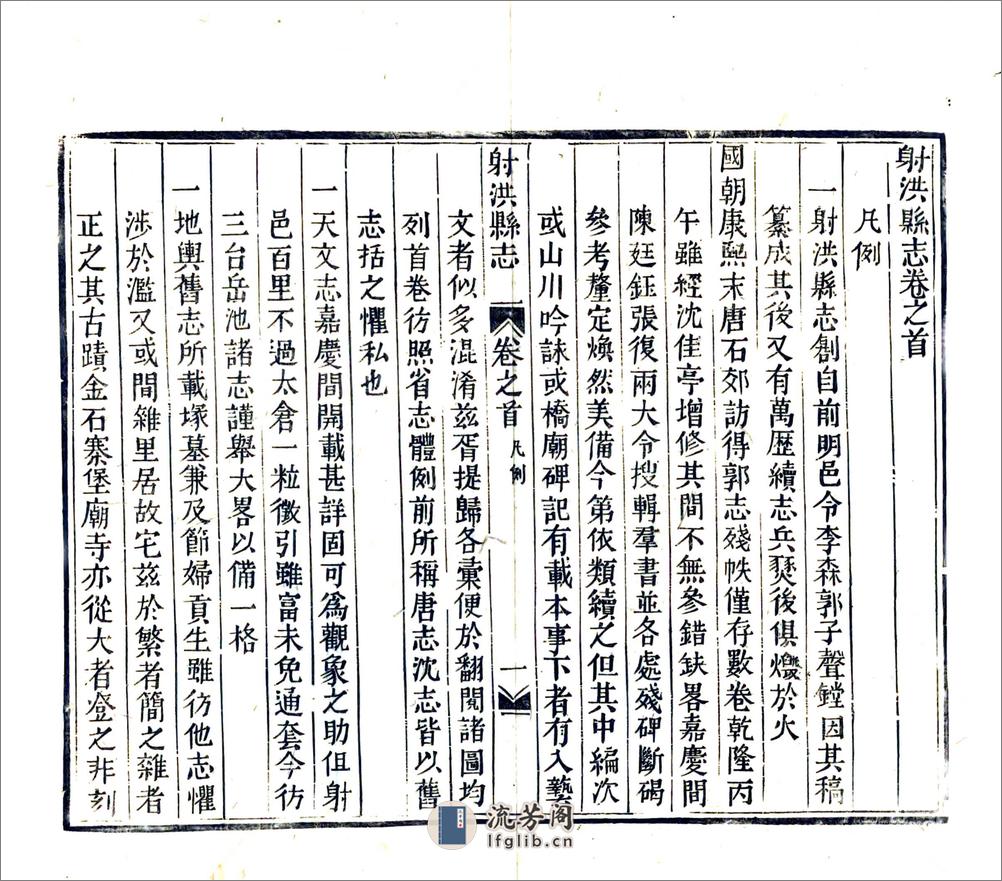 射洪縣志卷之首
凡例
一射洪縣志創自前明邑令李森郭子聲鏜因其稿
纂成其後又有萬歷續志兵燹後俱燬於火
國朝康熙末唐石郊訪得郭志殘帙僅存數卷乾隆丙
午雖經沈佳亭增修其間不無參錯缺畧嘉慶間
陳廷鈺張復兩大令搜輯羣書並各處殘碑斷碣
參考釐定煥然美備今第依類續之但其中編次
或山川吟詠或橋廟碑記有載本事下者有入藝
射洪縣志 卷之首 凡例 一
文者似多混淆茲胥提歸各彙便於翻閱諸圖均
列首卷彷照省志體例前所稱唐志沈志皆以舊
志括之懼私也
一天文志嘉慶間開載甚詳固可爲觀象之助但射
邑百里不過太倉一粒徵引雖富未免通套今彷
三台岳池諸志謹舉大畧以備一格
一地輿舊志所載塚墓兼及節婦貢生雖彷他志懼
涉於濫又或間雜里居故宅茲於繁者簡之雜者
正之其古蹟金石寨堡廟寺亦從大者登之非刻
流芳阁
lfglib.cn